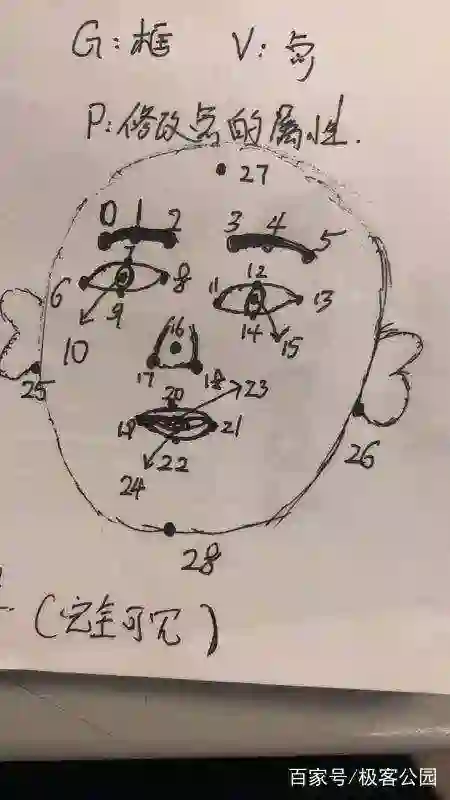 G:框 V:点
P:修改点的属性.
27
0 1 2 3 4 5
6 7 8 11 12 13
9 14 15
10
16
17 18
25 20 23
19 21
22 26
24
28
(完全可见)
百家号/极客公园